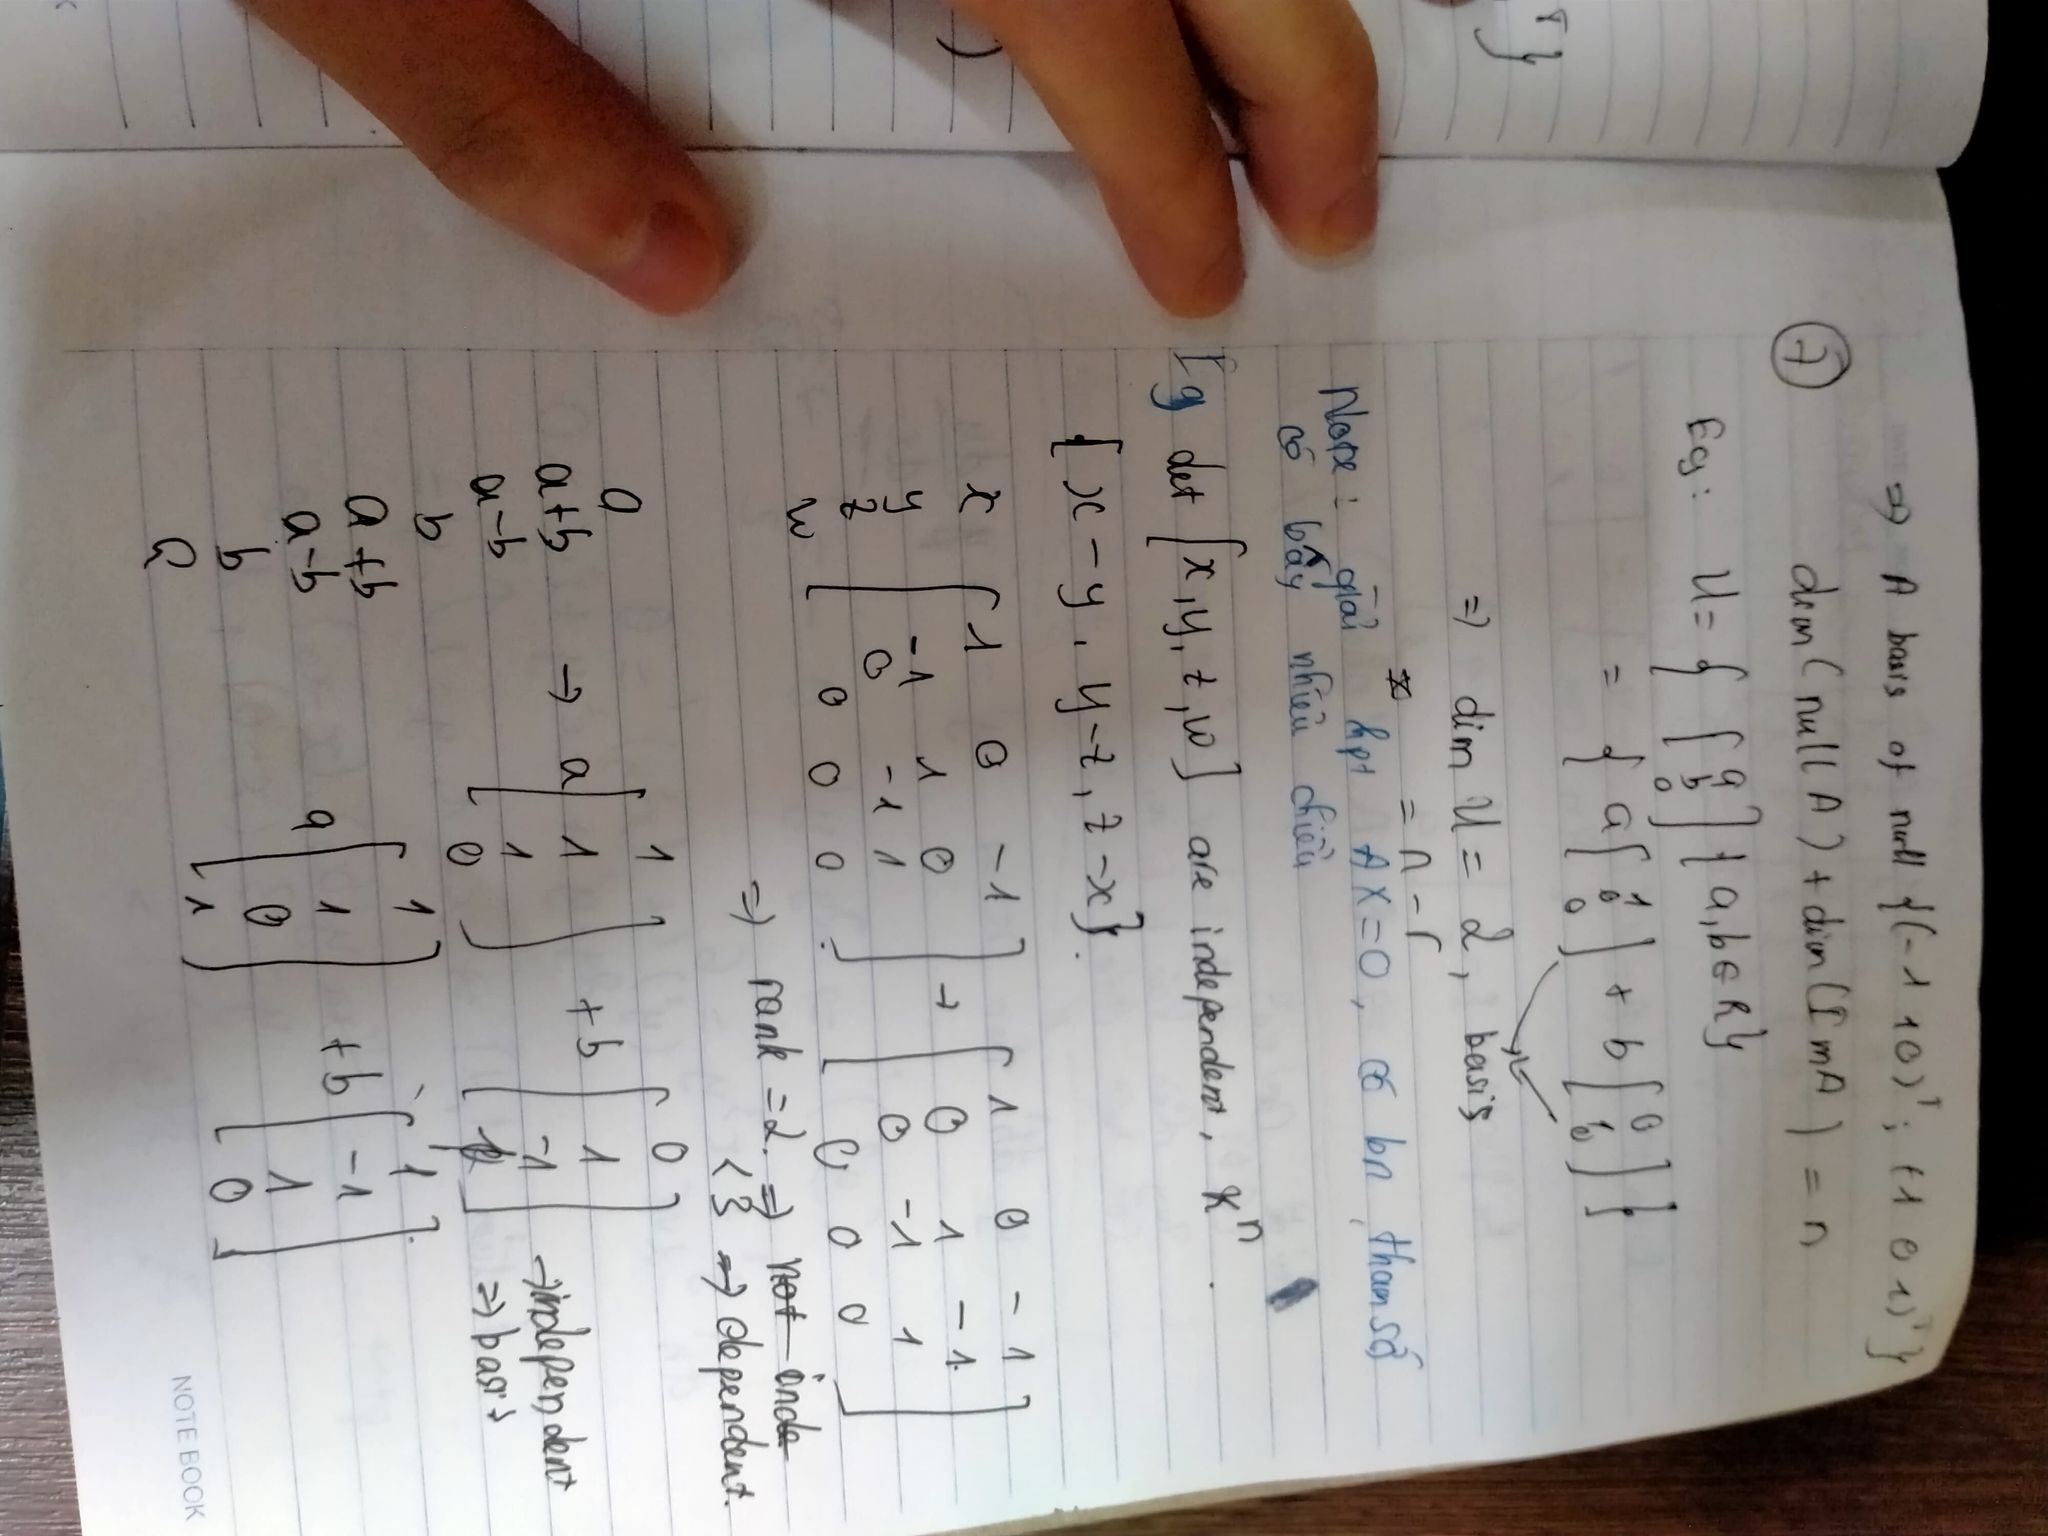 ⇒ A basis of null {(-1 1 0)ᵀ; (1 0 1)ᵀ}
⑦ dim(null A) + dim(Im A) = n
Eg: U = { [a b 0] { a, b ∈ R}
= { a [1 0 0] + b [0 1 0] }
⇒ dim U = 2, basis
= n - r
Note: giải hpt AX=0, có bn tham số
có bấy nhiêu chiều
Eg det [x, y, z, w] are independent, ℝⁿ.
{x-y, y-z, z-x}.
x [ 1 0 -1 ] → [ 1 0 -1 ]
y [ -1 1 0 ] [ 0 1 -1 ]
z [ 0 -1 1 ] [ 0 -1 1 ]
w [ 0 0 0 ] [ 0 0 0 ]
⇒ rank = 2. ⇒ not inde
< 3 ⇒ dependent.
a [ 1 ] [ 0 ]
a+b → a [ 1 ] + b [ 1 ]
a-b [ 1 ] [ -1 ] → independent
b [ 0 ] ⇒ basis
a+b [ 1 ] [ 1 ]
a-b a [ 1 ] + b [ -1 ]
b [ 0 ] [ 1 ]
a [ 1 ] [ 0 ]
NOTE BOOK
T}
)